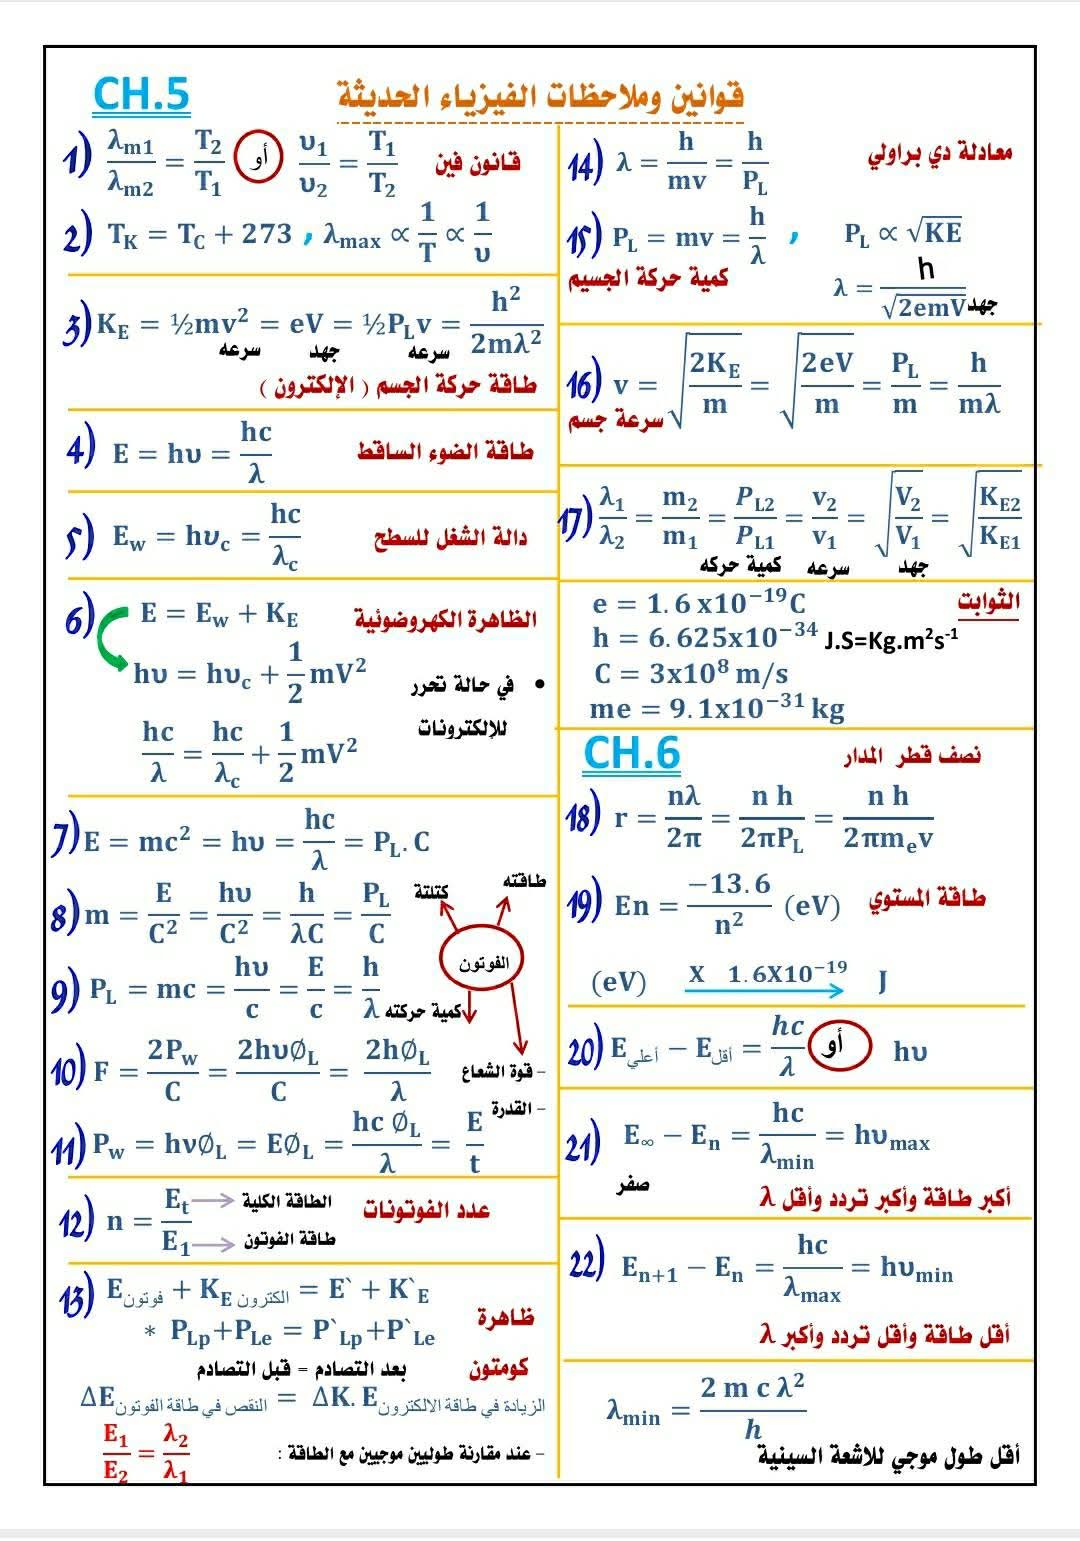 CH.5
قوانين وملاحظات الفيزياء الحديثة
1) λm1/λm2 = T2/T1 أو υ1/υ2 = T1/T2 قانون فين
2) TK = TC + 273 , λmax ∝ 1/T ∝ 1/υ
3) KE = ½mv² = eV = ½PLv = h²/2mλ²
سرعه جهد سرعه
طاقة حركة الجسم ( الإلكترون )
4) E = hυ = hc/λ طاقة الضوء الساقط
5) Ew = hυc = hc/λc دالة الشغل للسطح
6) E = Ew + KE الظاهرة الكهروضوئية
hυ = hυc + 1/2 mV² • في حالة تحرر
للإلكترونات
hc/λ = hc/λc + 1/2 mV²
7) E = mc² = hυ = hc/λ = PL. C
8) m = E/C² = hυ/C² = h/λC = PL/C
كتلتة طاقته
الفوتون
9) PL = mc = hυ/c = E/c = h/λ كمية حركته
10) F = 2Pw/C = 2hυØL/C = 2hØL/λ – قوة الشعاع
– القدرة
11) Pw = hνØL = EØL = hc ØL/λ = E/t
12) n = Et/E1 عدد الفوتونات
الطاقة الكلية
طاقة الفوتون
13) Eفوتون + KE الكترون = E` + K`E
* PLp+PLe = P`Lp+P`Le ظاهرة
كومتون
بعد التصادم = قبل التصادم
ΔE النقص في طاقة الفوتون = ΔK. E الزيادة في طاقة الالكترون
E1/E2 = λ2/λ1 – عند مقارنة طوليين موجيين مع الطاقة :
14) λ = h/mv = h/PL معادلة دي براولي
15) PL = mv = h/λ , PL ∝ √KE
كمية حركة الجسيم
λ = h/√2emV جهد
16) v = √2KE/m = √2eV/m = PL/m = h/mλ
سرعة جسم
17) λ1/λ2 = m2/m1 = PL2/PL1 = v2/v1 = √V2/V1 = √KE2/KE1
كمية حركه سرعه جهد
الثوابت
e = 1.6 x10⁻¹⁹C
h = 6.625x10⁻³⁴ J.S=Kg.m²s⁻¹
C = 3x10⁸ m/s
me = 9.1x10⁻³¹ kg
CH.6
نصف قطر المدار
18) r = nλ/2π = n h/2πPL = n h/2πmev
19) En = −13.6/n² (eV) طاقة المستوي
(eV) X 1.6X10⁻¹⁹ J
20) Eأعلي − Eأقل = hc/λ أو hυ
21) E∞ − En = hc/λmin = hυmax
صفر
أكبر طاقة وأكبر تردد وأقل λ
22) En+1 − En = hc/λmax = hυmin
أقل طاقة وأقل تردد وأكبر λ
λmin = 2 m c λ²/h
أقل طول موجي للاشعة السينية